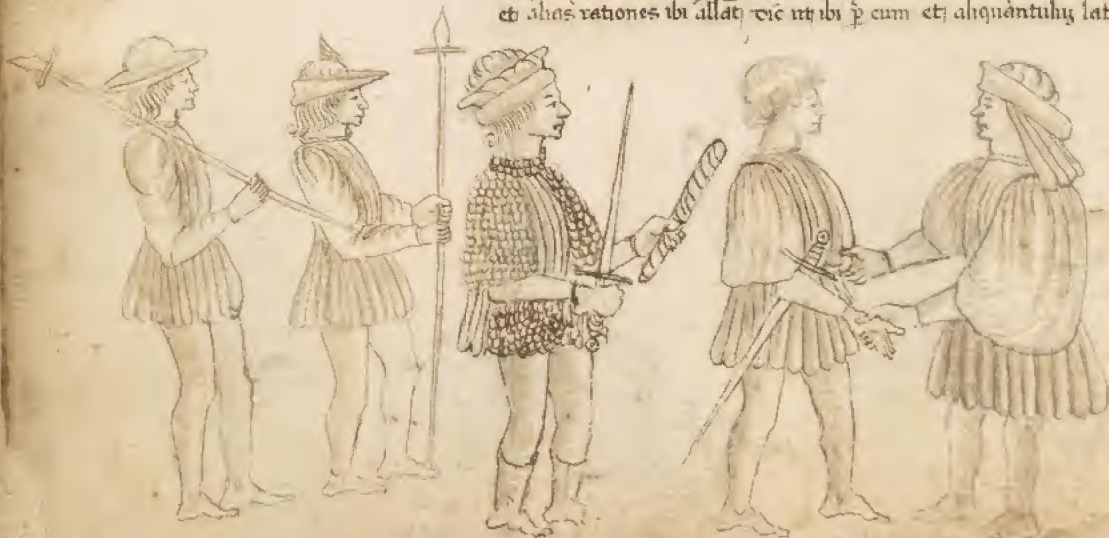 et alias rationes ibi allat vic ut ibi p cum et aliquantuluz lat